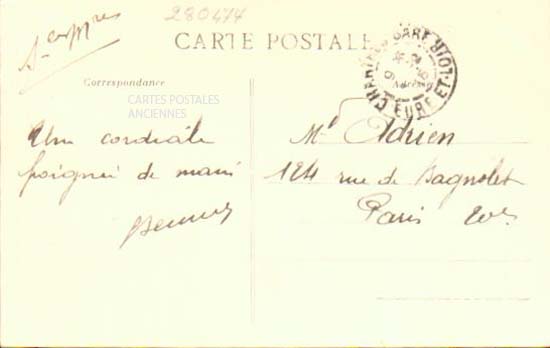 280474
CARTE POSTALE
Correspondance
CARTES POSTALES
ANCIENNES
CHARTRES GARE EURE-ET-LOIR
Une cordiale
poignée de main
Mr Adrien
124 rue de Bagnolet
Paris